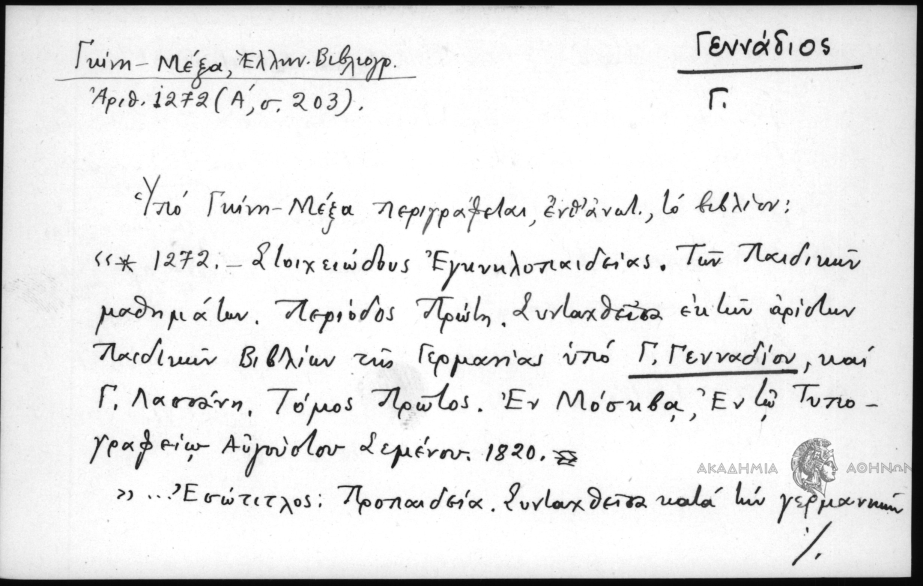 Γκίνη-Μέξα, Ἑλλην. Βιβλιογρ.
Ἀριθ. 1272 (Α΄, σ. 203).
Γεννάδιος
Γ.
Ὑπό Γκίνη-Μέξα περιγράφεται, ἐνθ' ἀνωτ., τό βιβλίον:
«* 1272. – Στοιχειώδους Ἐγκυκλοπαιδείας. Τῶν Παιδικῶν
μαθημάτων. Περίοδος Πρώτη. Συνταχθεῖσα ἐκ τῶν ἀρίστων
Παιδικῶν Βιβλίων τῆς Γερμανίας ὑπό Γ. Γενναδίου, καί
Γ. Λασσάνη. Τόμος Πρῶτος. Ἐν Μόσκβᾳ, Ἐν τῷ Τυπο-
γραφείῳ Αὐγούστου Σεμένου. 1820.
» ... Ἐσώτιτλος: Προπαιδεία. Συνταχθεῖσα κατά τήν γερμανικήν
./.
ΑΚΑΔΗΜΙΑ ΑΘΗΝΩΝ